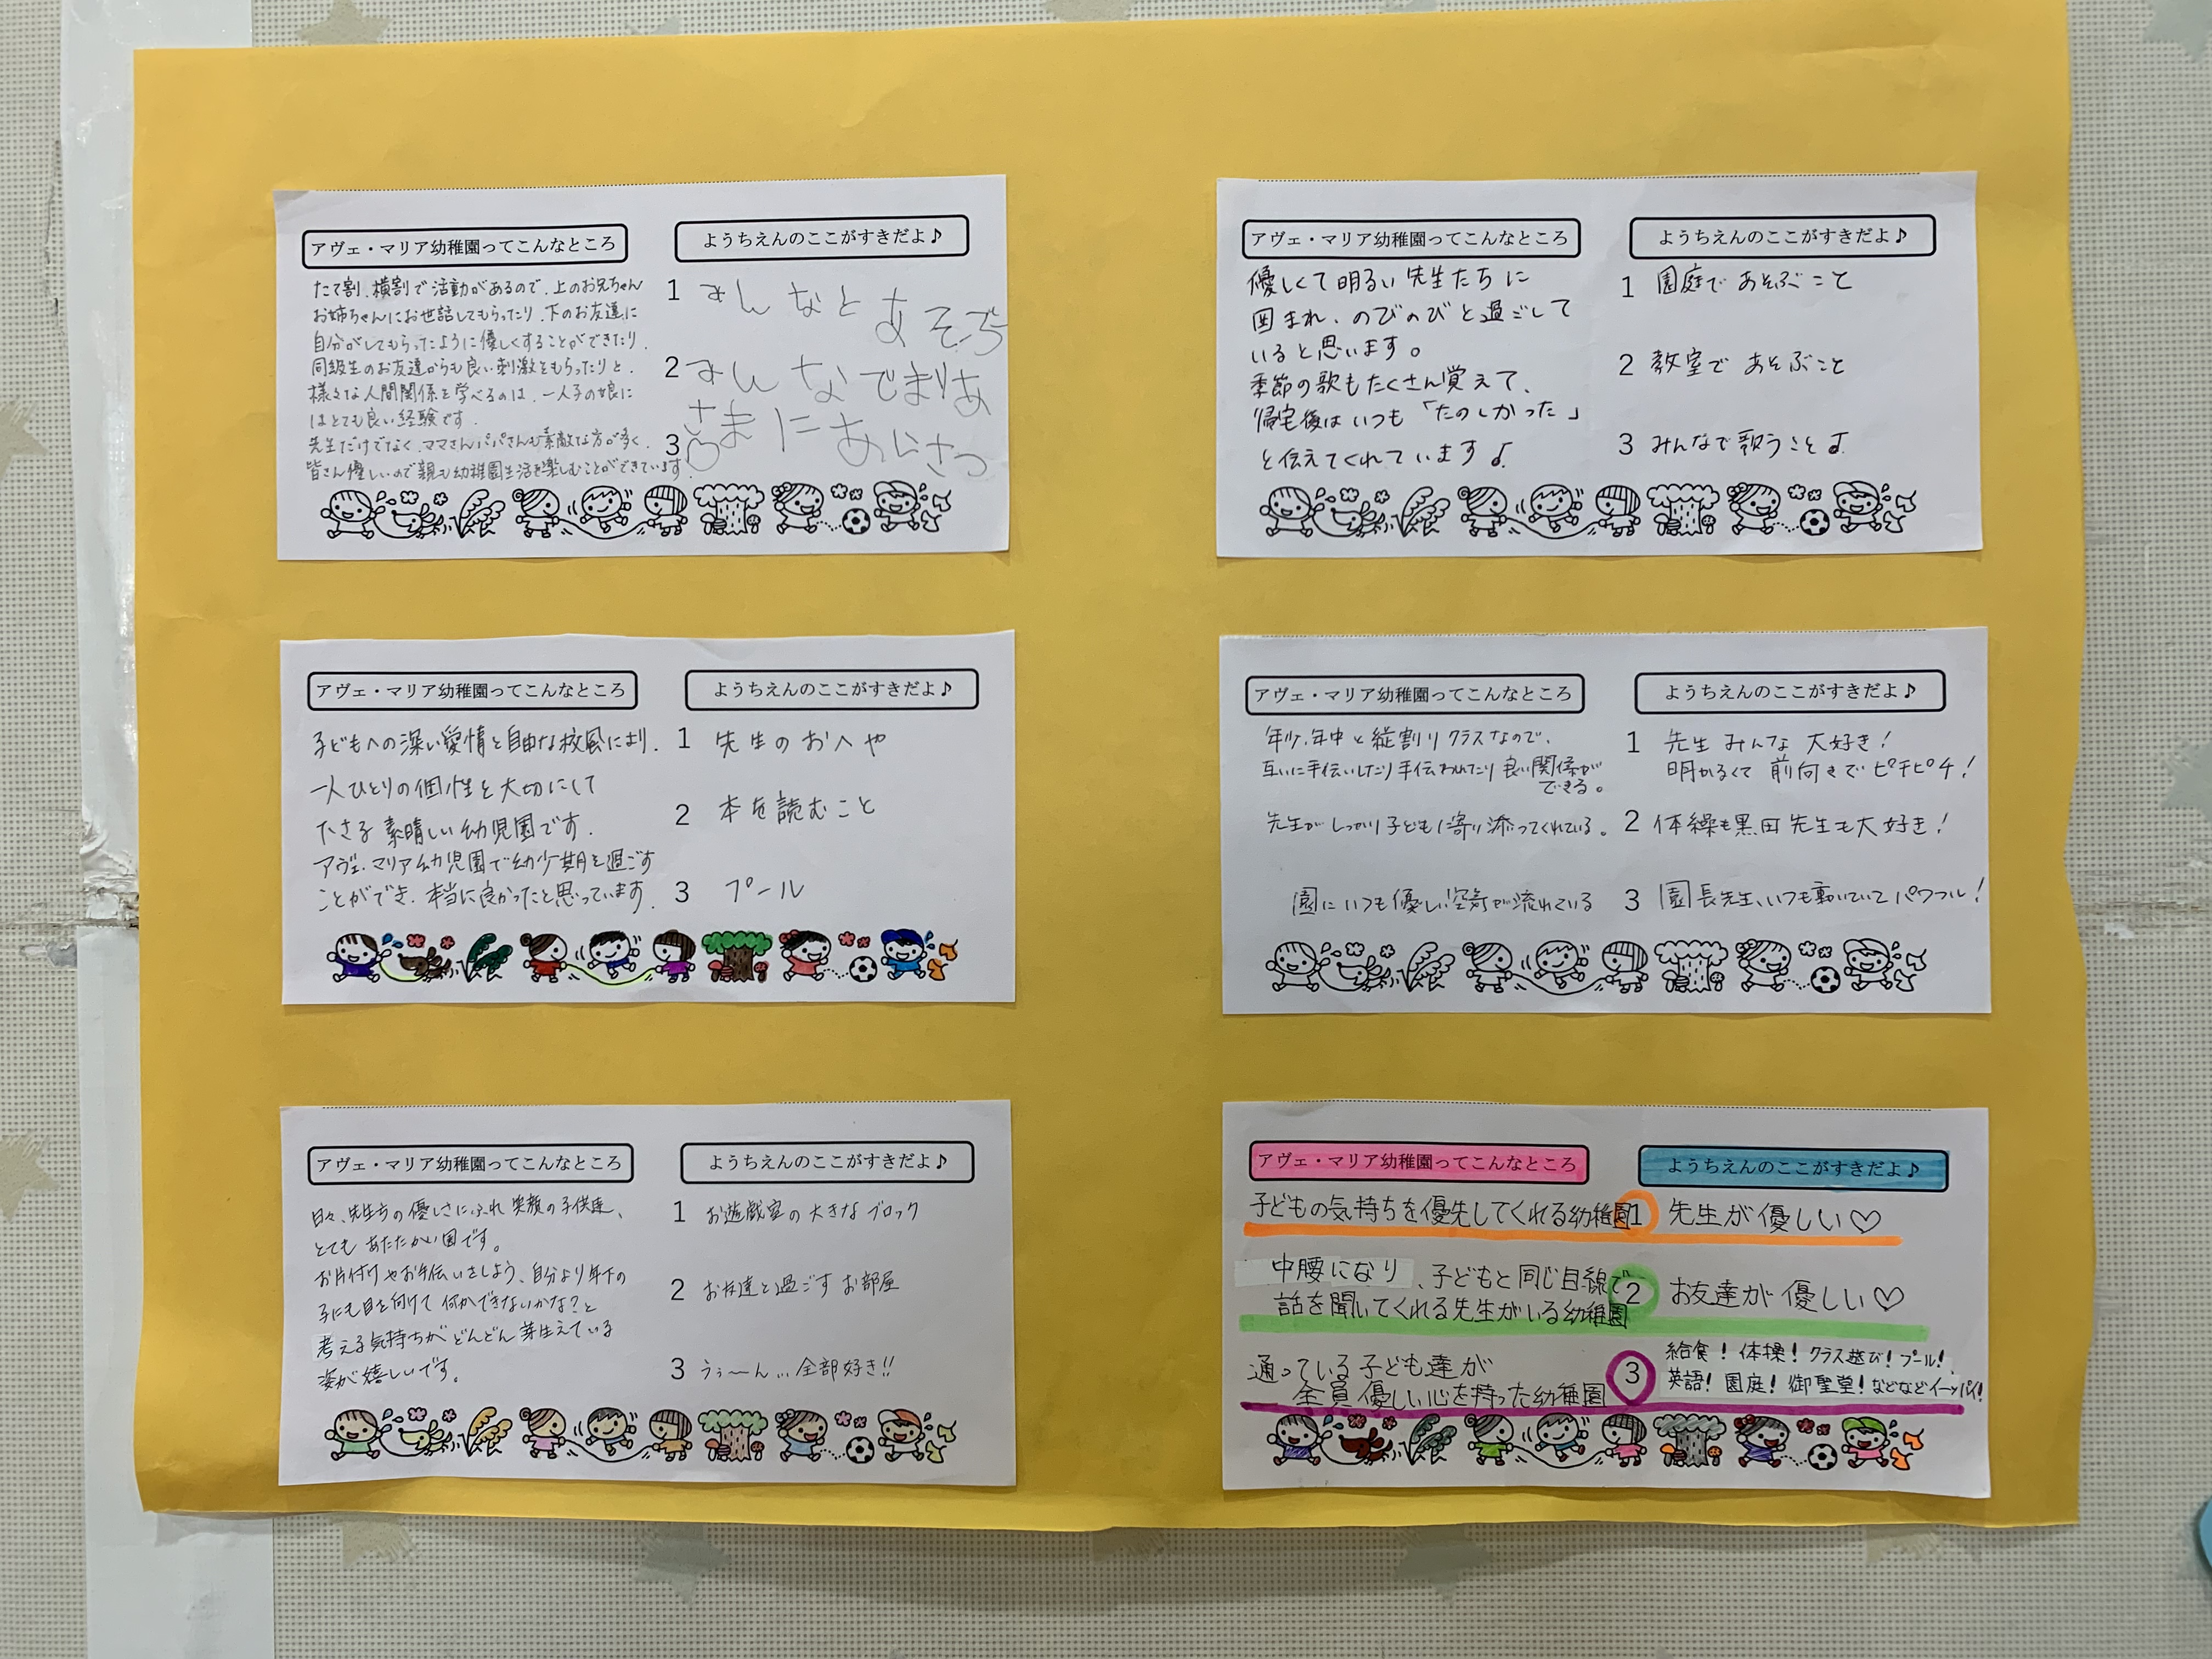 アヴェ・マリア幼稚園ってこんなところ
たて割、横割で活動があるので、上のお兄ちゃん
お姉ちゃんにお世話してもらったり、下のお友達に
自分がしてもらったように優しくすることができたり、
同級生のお友達からも良い刺激をもらったりと、
様々な人間関係を学べるのは、一人子の娘に
はとても良い経験です。
先生だけでなく、ママさんパパさんも素敵な方が多く、
皆さん優しいので親も幼稚園生活を楽しむことができています。
ようちえんのここがすきだよ♪
1 みんなとあそぶ
2 みんなでまりあ
さまにあいさつ
3
アヴェ・マリア幼稚園ってこんなところ
優しくて明るい先生たちに
囲まれ、のびのびと過ごして
いると思います。
季節の歌もたくさん覚えて、
帰宅後はいつも「たのしかった」
と伝えてくれています♪
ようちえんのここがすきだよ♪
1 園庭であそぶこと
2 教室であそぶこと
3 みんなで歌うこと♪
アヴェ・マリア幼稚園ってこんなところ
子どもへの深い愛情と自由な校風により、
一人ひとりの個性を大切にして
下さる素晴しい幼児園です。
アヴェ・マリア幼児園で幼少期を過ごす
ことができ、本当に良かったと思っています。
ようちえんのここがすきだよ♪
1 先生のおへや
2 本を読むこと
3 プール
アヴェ・マリア幼稚園ってこんなところ
年少、年中と縦割りクラスなので、
互いに手伝いしたり手伝われたり良い関係が
できる。
先生がしっかり子どもに寄り添ってくれている。
園にいつも優しい空気が流れている
ようちえんのここがすきだよ♪
1 先生みんな大好き!
明かるくて前向きでピチピチ!
2 体操も黒田先生も大好き!
3 園長先生、いつも動いていてパワフル!
アヴェ・マリア幼稚園ってこんなところ
日々、先生方の優しさにふれ笑顔の子供達、
とてもあたたかい園です。
お片付けやお手伝いをしよう、自分より年下の
子にも目を向けて何かできないかな?と
考える気持ちがどんどん芽生えている
姿が嬉しいです。
ようちえんのここがすきだよ♪
1 お遊戯室の大きなブロック
2 お友達と過ごすお部屋
3 うぅ〜ん…全部好き!!
アヴェ・マリア幼稚園ってこんなところ
子どもの気持ちを優先してくれる幼稚園
中腰になり、子どもと同じ目線で
話を聞いてくれる先生がいる幼稚園
通っている子ども達が
全員優しい心を持った幼稚園
ようちえんのここがすきだよ♪
1 先生が優しい♡
2 お友達が優しい♡
3 給食!体操!クラス遊び!プール!
英語!園庭!御聖堂!などなどイーッパイ!